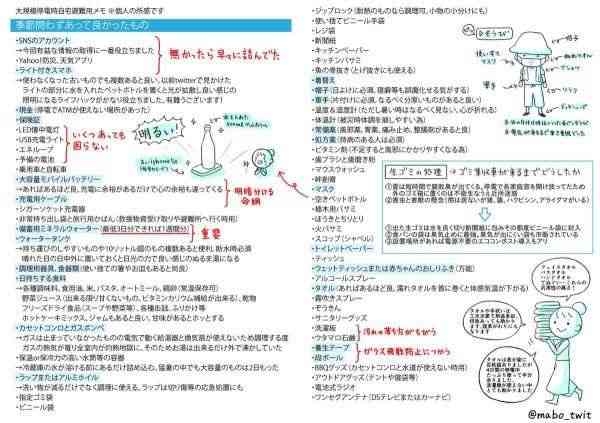 大規模停電時自宅避難用メモ ※個人の所感です
季節問わずあって良かったもの
・SNSのアカウント
→今回有益な情報の取得に一番役立ちました
・Yahoo!防災、天気アプリ
無かったら早々に詰んでた
・ライト付きスマホ
→使わなくなった古いものでも複数あると良い、以前twitterで見かけた
ライトの部分に水を入れたペットボトルを置くと光が拡散し良い感じの
照明になるライフハックがかなり役立ちました、有難うございます!
・現金(停電でATMが使えない場所があった)
・保険証
・LED懐中電灯
・USB充電ライト
・エネループ
・予備の電池
いくつあっても
困らない
明るい!
・乗用車と自転車
・大容量モバイルバッテリー
→あればあるほど良、充電に余裕があるだけで心の余裕も違ってくる
・充電用ケーブル
明暗分ける
命綱
・シガーソケット充電器
・非常持ち出し袋と旅行用かばん(救援物資受け取りや避難所へ行く時用)
・備蓄用ミネラルウォーター(最低3日分できれば1週間分)
重要
・ウォータータンク
→持ち運びのしやすいもの
晴れた日の日中外に置いておくと日光の力で良い感じのぬるま湯になる
・調理用器具、食器類(使い捨ての箸やお皿もあると尚良)
・日持ちする食料
→各種調味料、食用油、米、パスタ、オートミール、鶏卵(常温保存可)
野菜ジュース(出来る限り甘くないもの、ビタミンカリウム補給が出来る)、乾物
フリーズドライ食品(スープや野菜等)、各種缶詰、ふりかけ等
ホットケーキミックス、ジャムもあると良い、甘味があるとホッとする
・カセットコンロとガスボンベ
→ガスは止まっていなかったものの電気で動く給湯器と換気扇が使えないため調理する度
ガスの熱気が籠り全室内が灼熱地獄に、そのためお湯は出来るだけ外で沸かしていた
・保温or保冷力の高い水筒等の容器
→冷蔵庫の氷が溶ける前にあるだけ詰め込む、猛暑の中でも大容量のものは2日もった
・ラップまたはアルミホイル
→洗い物が減るだけでなく調理に使える、ラップは切り傷等の応急処置にも
・指定ゴミ袋
・ビニール袋
・ジップロック(耐熱のものなら調理可、小物の小分けにも)
・使い捨てビニール手袋
・レジ袋
・新聞紙
・キッチンペーパー
・キッチンバサミ
・魚の骨抜き(とげ抜きにも使える)
・着替え
・帽子(日よけに必須、寝癖等も誤魔化せる気がする)
・軍手(片付けに必須、なるべく分厚いものがあると良い)
・温度&湿度計(ただし暑い時はなるべく見ない、心が折れる)
・体温計(被災時体調を崩し易いため)
・常備薬(風邪薬、胃薬、痛み止め、整腸剤があると良)
・処方薬(持病のある人は必須)
・ビタミン剤(不足すると風邪にかかりやすくなる為)
・歯ブラシと歯磨き粉
・マウスウォッシュ
・絆創膏
・マスク
・空きペットボトル
・植木用バサミ
・ほうきとちりとり
・火バサミ
・スコップ(シャベル)
・トイレットペーパー
・ティッシュ
・ウェットティッシュまたは赤ちゃんのおしりふき(万能)
・アルコールスプレー
・タオル(あればあるほど良、濡れタオルを首に巻くと体感気温が下がる)
・霧吹きスプレー
・ぞうきん
・サニタリーグッズ
・洗濯板
・ウタマロ石鹸
汚れの落ち方がちがう
・養生テープ
・段ボール
ガラス飛散防止につかう
・BBQグッズ(カセットコンロと水道が使えない時用)
・アウトドアグッズ(テントや寝袋等)
・電池式ラジオ
・ワンセグアンテナ(DSテレビまたはカーナビ)
おそうじ
使い捨て
マスク
帽子
軍手
生ゴミの処理 → ゴミ収集車が来るまでどうしたか
@mabo_twit